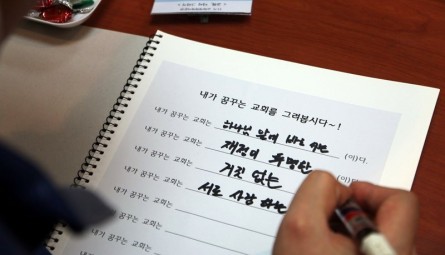 내가 꿈꾸는 교회를 그려봅시다~!
내가 꿈꾸는 교회는 하나님 말씀 바로 아는 (이)다.
내가 꿈꾸는 교회는 재정이 투명한 (이)다.
내가 꿈꾸는 교회는 거짓 없는 (이)
내가 꿈꾸는 교회는 서로 사랑하는
내가 꿈꾸는 교회는
내가 꿈꾸는 교회는
내가 꿈꾸는 교회는